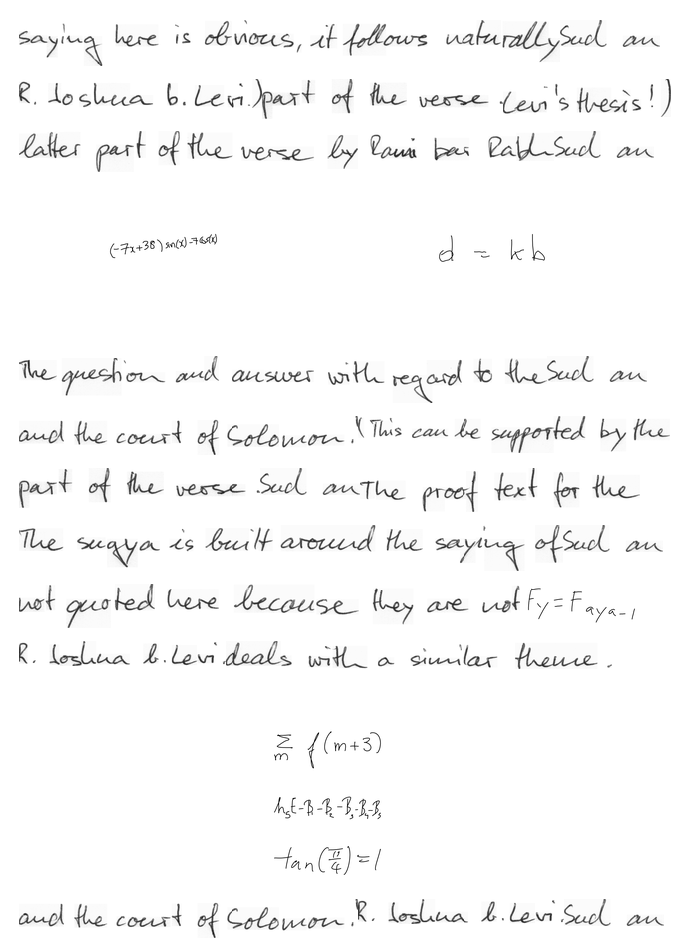 saying here is obvious, it follows naturally Such an
R. Joshua b. Levi.) part of the verse Levi's thesis!)
latter part of the verse by Rami bar Rabh Such an
(-7x+38) sin(x) -7 cos(x) d = kb
The question and answer with regard to the Such an
and the court of Solomon." This can be supported by the
part of the verse. Such an The proof text for the
The sugya is built around the saying of Such an
not quoted here because they are not F_y = F_{a y a-1}
R. Joshua b. Levi deals with a similar theme.
\sum_m f(m+3)
h_5 E - B_1 - B_2 - B_3 - B_4 - B_5
tan(π/4) = 1
and the court of Solomon. R. Joshua b. Levi. Such an